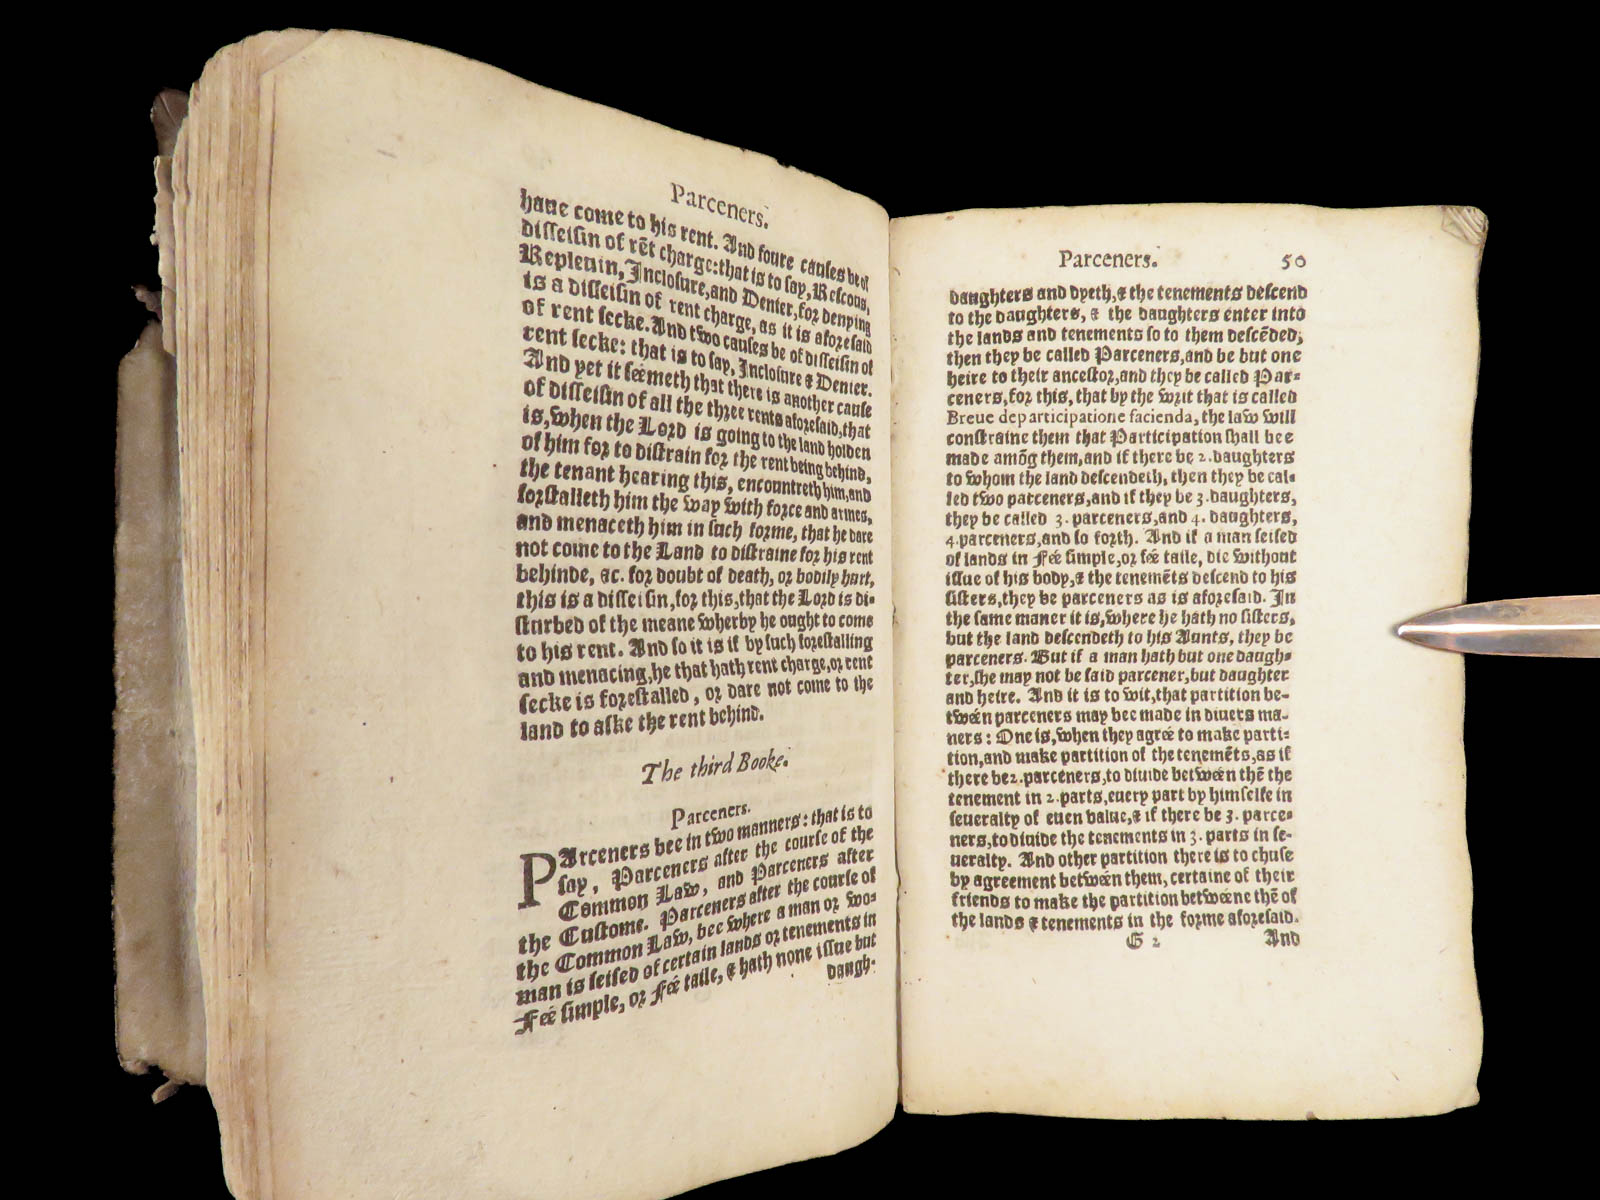 Parceners.
haue come to his rent. And foure causes be of
disseisin of rẽt charge: that is to say, Rescous,
Repleuin, Inclosure, and Denier, for denying
is a disseisin of rent charge, as it is aforesaid
of rent secke. And two causes be of disseisin of
rent secke: that is to say, Inclosure & Denier.
And yet it séemeth that there is another cause
of disseisin of all the three rents aforesaid, that
is, when the Lord is going to the land holden
of him for to distrain for the rent being behind,
the tenant hearing this, encountreth him, and
forstalleth him the way with force and armes,
and menaceth him in such forme, that he dare
not come to the Land to distraine for his rent
behinde, &c. for doubt of death, or bodily hurt,
this is a disseisin, for this, that the Lord is di-
sturbed of the meane wherby he ought to come
to his rent. And so it is if by such forestalling
and menacing, he that hath rent charge, or rent
secke is forestalled, or dare not come to the
land to aske the rent behind.
The third Booke.
Parceners.
PArceners bee in two manners: that is to
say, Parceners after the course of the
Common Law, and Parceners after
the Custome. Parceners after the course of
the Common Law, bee where a man or wo-
man is seised of certain lands or tenements in
Feé simple, or Feé taile, & hath none issue but
daugh-
Parceners. 50
daughters and dyeth, & the tenements descend
to the daughters, & the daughters enter into
the lands and tenements so to them descẽded,
then they be called Parceners, and be but one
heire to their ancestor, and they be called Par-
ceners, for this, that by the writ that is called
Breue de participatione facienda, the law will
constraine them that Participation shall bee
made amõg them, and if there be 2. daughters
to whom the land descendeth, then they be cal-
led two parceners, and if they be 3. daughters,
they be called 3. parceners, and 4. daughters,
4. parceners, and so forth. And if a man seised
of lands in Feé simple, or feé taile, die without
issue of his body, & the tenemẽts descend to his
sisters, they be parceners as is aforesaid. In
the same maner it is, where he hath no sisters,
but the land descendeth to his Aunts, they be
parceners. But if a man hath but one daugh-
ter, she may not be said parcener, but daughter
and heire. And it is to wit, that partition be-
tweén parceners may bee made in diuers ma-
ners: One is, when they agreé to make parti-
tion, and make partition of the tenemẽts, as if
there be 2. parceners, to diuide betweén thẽ the
tenement in 2. parts, euery part by himselfe in
seueralty of euen value, & if there be 3. parce-
ners, to diuide the tenements in 3. parts in se-
ueralty. And other partition there is to chuse
by agreement betweén them, certaine of their
friends to make the partition betweéne thẽ of
the lands & tenements in the forme aforesaid.
G 2 And